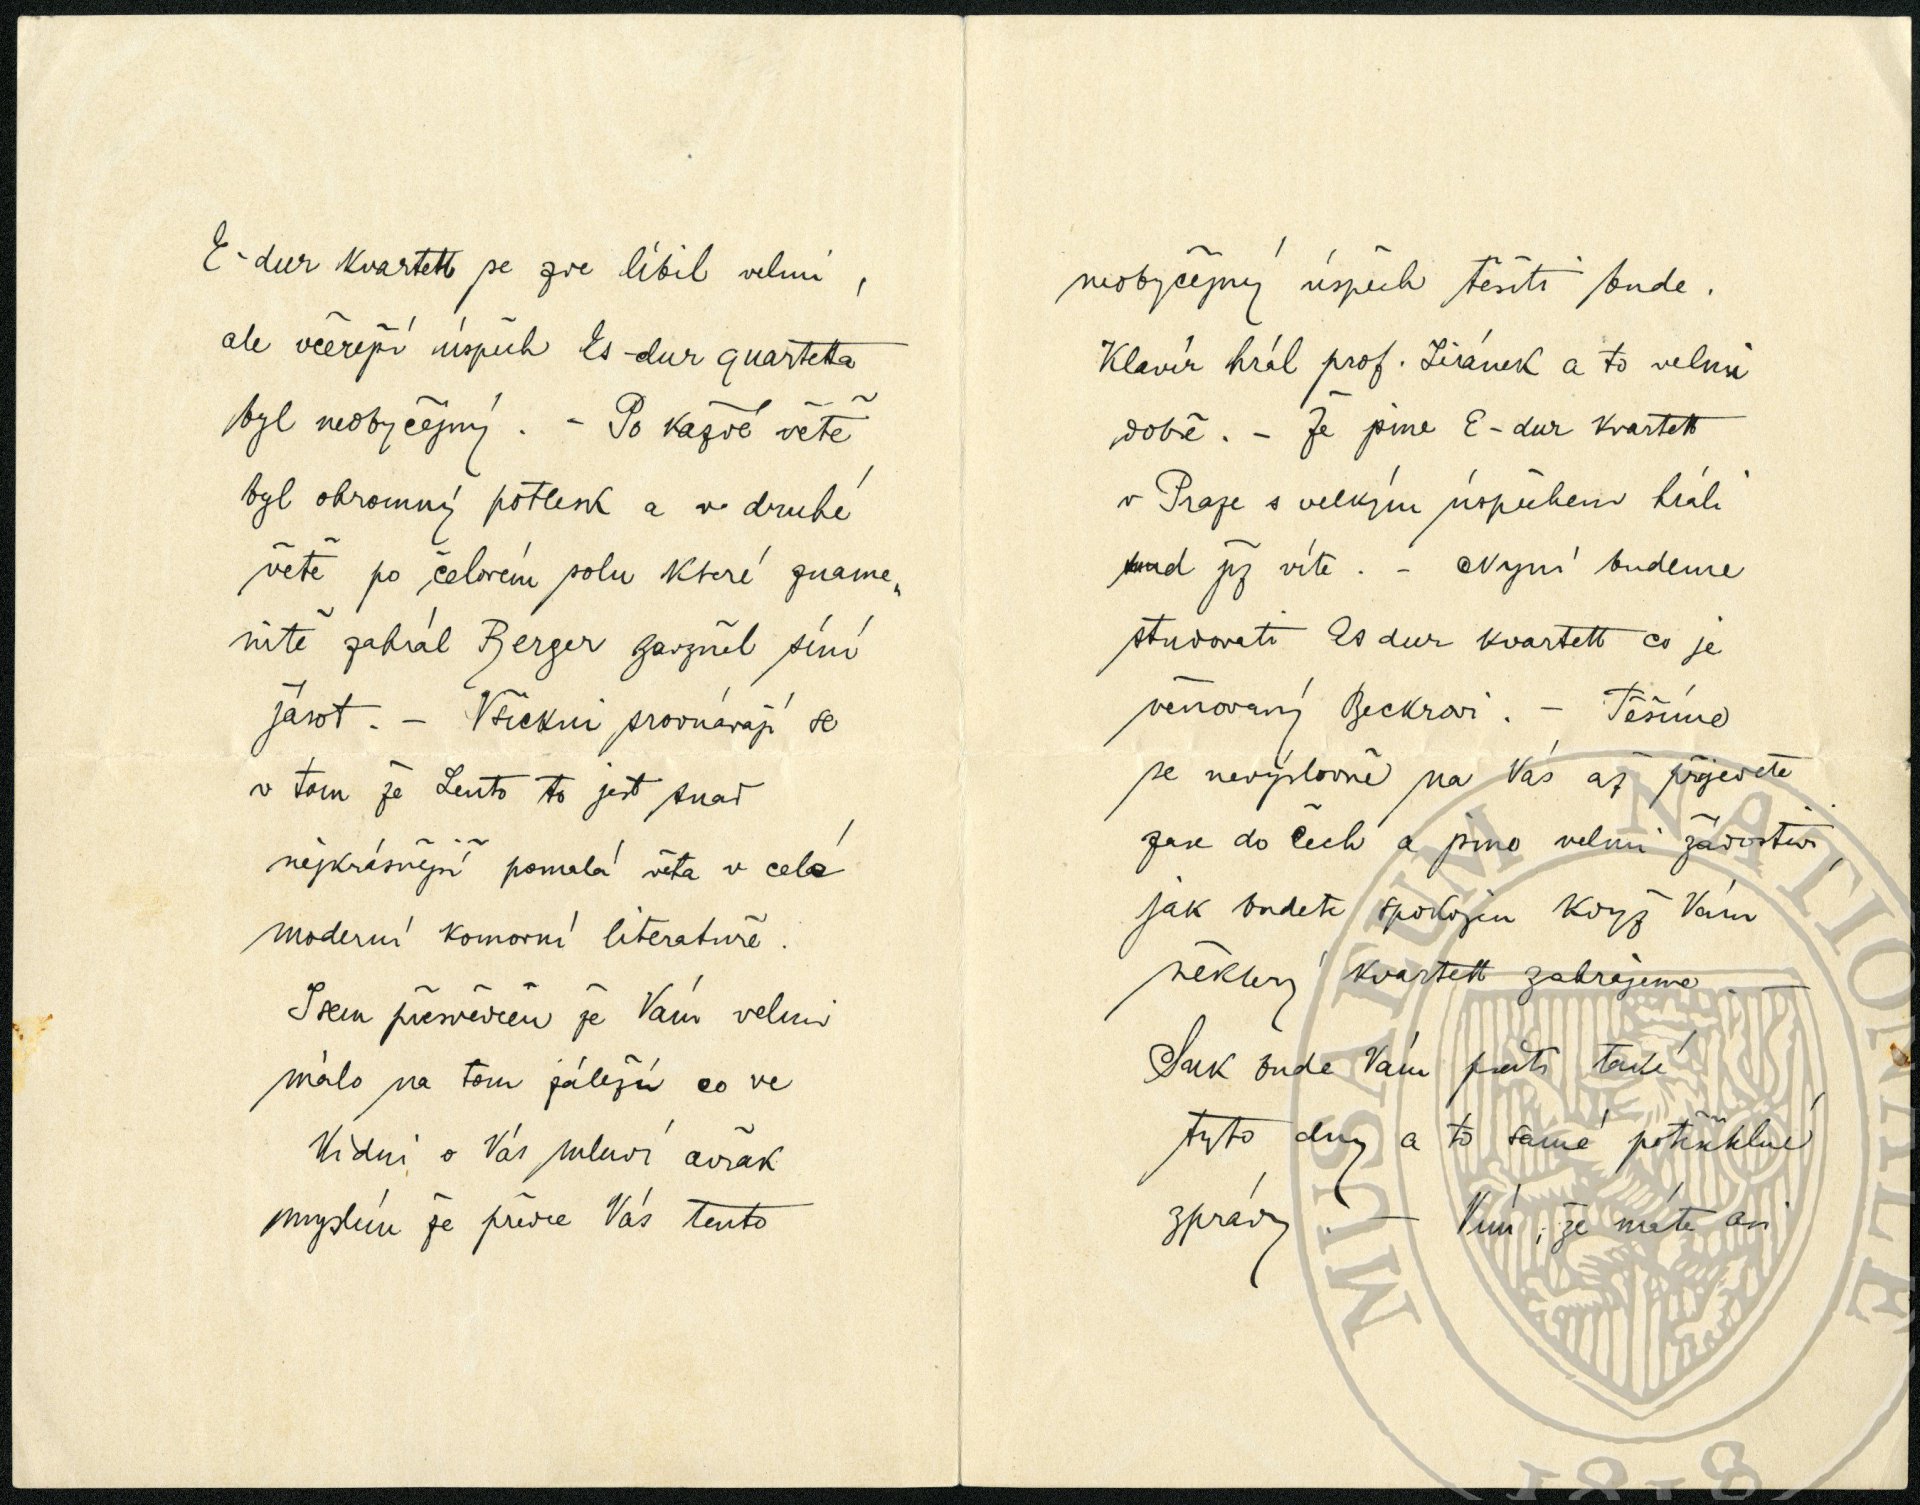 E-dur kvartett se zde líbil velmi,
ale včerejší úspěch Es-dur quartetta
byl neobyčejný. – Po každé větě
byl ohromný potlesk a v druhé
větě po čelovém solu které zname„
nitě zahrál Berger zavzněl síní
jásot. – Všickni srovnávají se
v tom že Lento to jest snad
nejkrásnější pomalá věta v celé
moderní komorní literatuře.
Jsem přesvědčen že Vám velmi
málo na tom záleží co ve
Vídni o Vás mluví avšak
myslím že přece Vás tento
neobyčejný úspěch těšiti bude.
Klavír hrál prof. Jiránek a to velmi
dobře. – Že jsme E-dur kvartett
v Praze s velkým úspěchem hráli
snad již víte. – Nyní budeme
studovati Es dur kvartett co je
věnovaný Beckrovi. – Těšíme
se nevýslovně na Vás až přijedete
zase do Čech a jsme velmi žádostivi,
jak budete spokojen když Vám
některý kvartett zahrajeme. –
Suk bude Vám psáti také
tyto dny a to samé potěšitelné
zprávy – Vím, že máte asi
MUSAEUM NATIONALE
1818